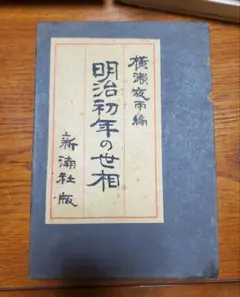 横瀬夜雨編
明治初年の世相
新潮社版